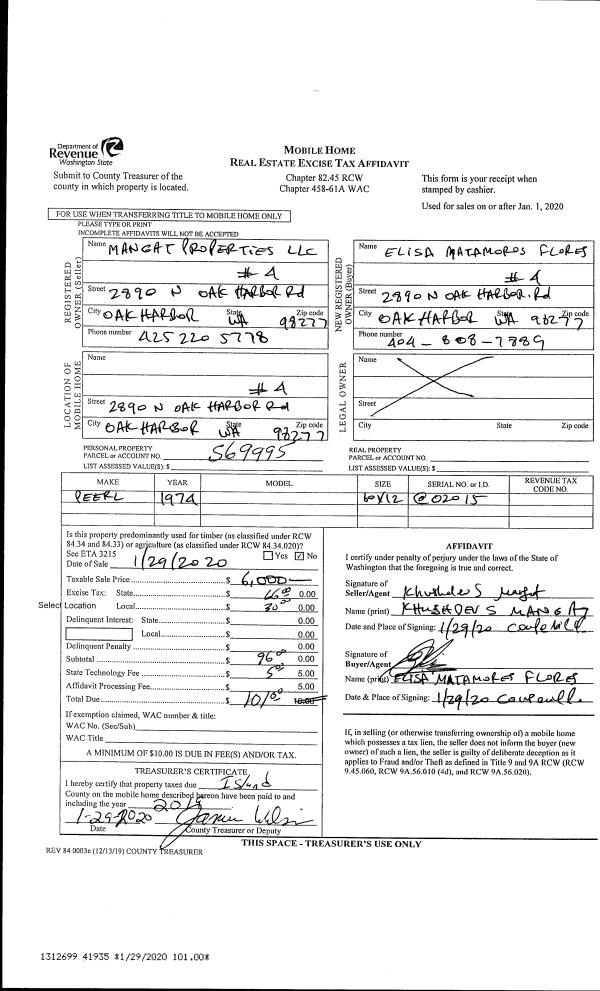 Department of
Revenue
Washington State
Submit to County Treasurer of the
county in which property is located.
MOBILE HOME
REAL ESTATE EXCISE TAX AFFIDAVIT
Chapter 82.45 RCW
Chapter 458-61A WAC
This form is your receipt when
stamped by cashier.
Used for sales on or after Jan. 1, 2020
FOR USE WHEN TRANSFERRING TITLE TO MOBILE HOME ONLY
PLEASE TYPE OR PRINT
INCOMPLETE AFFIDAVITS WILL NOT BE ACCEPTED
REGISTERED OWNER (Seller)
Name MANGAT PROPERTIES LLC
# 4
Street 2890 N OAK HARBOR Rd
City OAK HARBOR State WA Zip code 98277
Phone number 425 220 5778
NEW REGISTERED OWNER (Buyer)
Name ELISA MATAMOROS FLORES
# 4
Street 2890 N OAK HARBOR. Rd
City OAK HARBOR State WA Zip code 98277
Phone number 404-808-7889
LOCATION OF MOBILE HOME
Name
# 4
Street 2890 N OAK HARBOR Rd
City OAK HARBOR State WA Zip code 98277
LEGAL OWNER
Name
Street
City State Zip code
PERSONAL PROPERTY
PARCEL or ACCOUNT NO. S69995
LIST ASSESSED VALUE(S): $
REAL PROPERTY
PARCEL or ACCOUNT NO.
LIST ASSESSED VALUE(S): $
MAKE YEAR MODEL SIZE SERIAL NO. or I.D. REVENUE TAX CODE NO.
PEERL 1974 60X12 @02015
Is this property predominantly used for timber (as classified under RCW
84.34 and 84.33) or agriculture (as classified under RCW 84.34.020)?
See ETA 3215 Yes ✓ No
Date of Sale 1/29/2020
Taxable Sale Price $ 6,000
Excise Tax: State $ 66.00 0.00
Select Location Local $ 30.00 0.00
Delinquent Interest: State $ 0.00
Local $ 0.00
Delinquent Penalty $ 0.00
Subtotal $ 96.00 0.00
State Technology Fee $ 5.00 5.00
Affidavit Processing Fee $ 5.00
Total Due $ 101.00 10.00
If exemption claimed, WAC number & title:
WAC No. (Sec/Sub)
WAC Title
A MINIMUM OF $10.00 IS DUE IN FEE(S) AND/OR TAX.
TREASURER'S CERTIFICATE
I hereby certify that property taxes due Island
County on the mobile home described hereon have been paid to and
including the year 2019
1-29-2020
Date County Treasurer or Deputy
AFFIDAVIT
I certify under penalty of perjury under the laws of the State of
Washington that the foregoing is true and correct.
Signature of
Seller/Agent
Name (print) KHUSHDEV S MANGAT
Date and Place of Signing: 1/29/20 Coupeville
Signature of
Buyer/Agent
Name (print) ELISA MATAMOROS FLORES
Date & Place of Signing: 1/29/20 Coupeville
If, in selling (or otherwise transferring ownership of) a mobile home
which possesses a tax lien, the seller does not inform the buyer (new
owner) of such a lien, the seller is guilty of deliberate deception as it
applies to Fraud and/or Theft as defined in Title 9 and 9A RCW (RCW
9.45.060, RCW 9A.56.010 (4d), and RCW 9A.56.020).
THIS SPACE - TREASURER'S USE ONLY
REV 84 0003e (12/13/19) COUNTY TREASURER
1312699 41935 *1/29/2020 101.00*